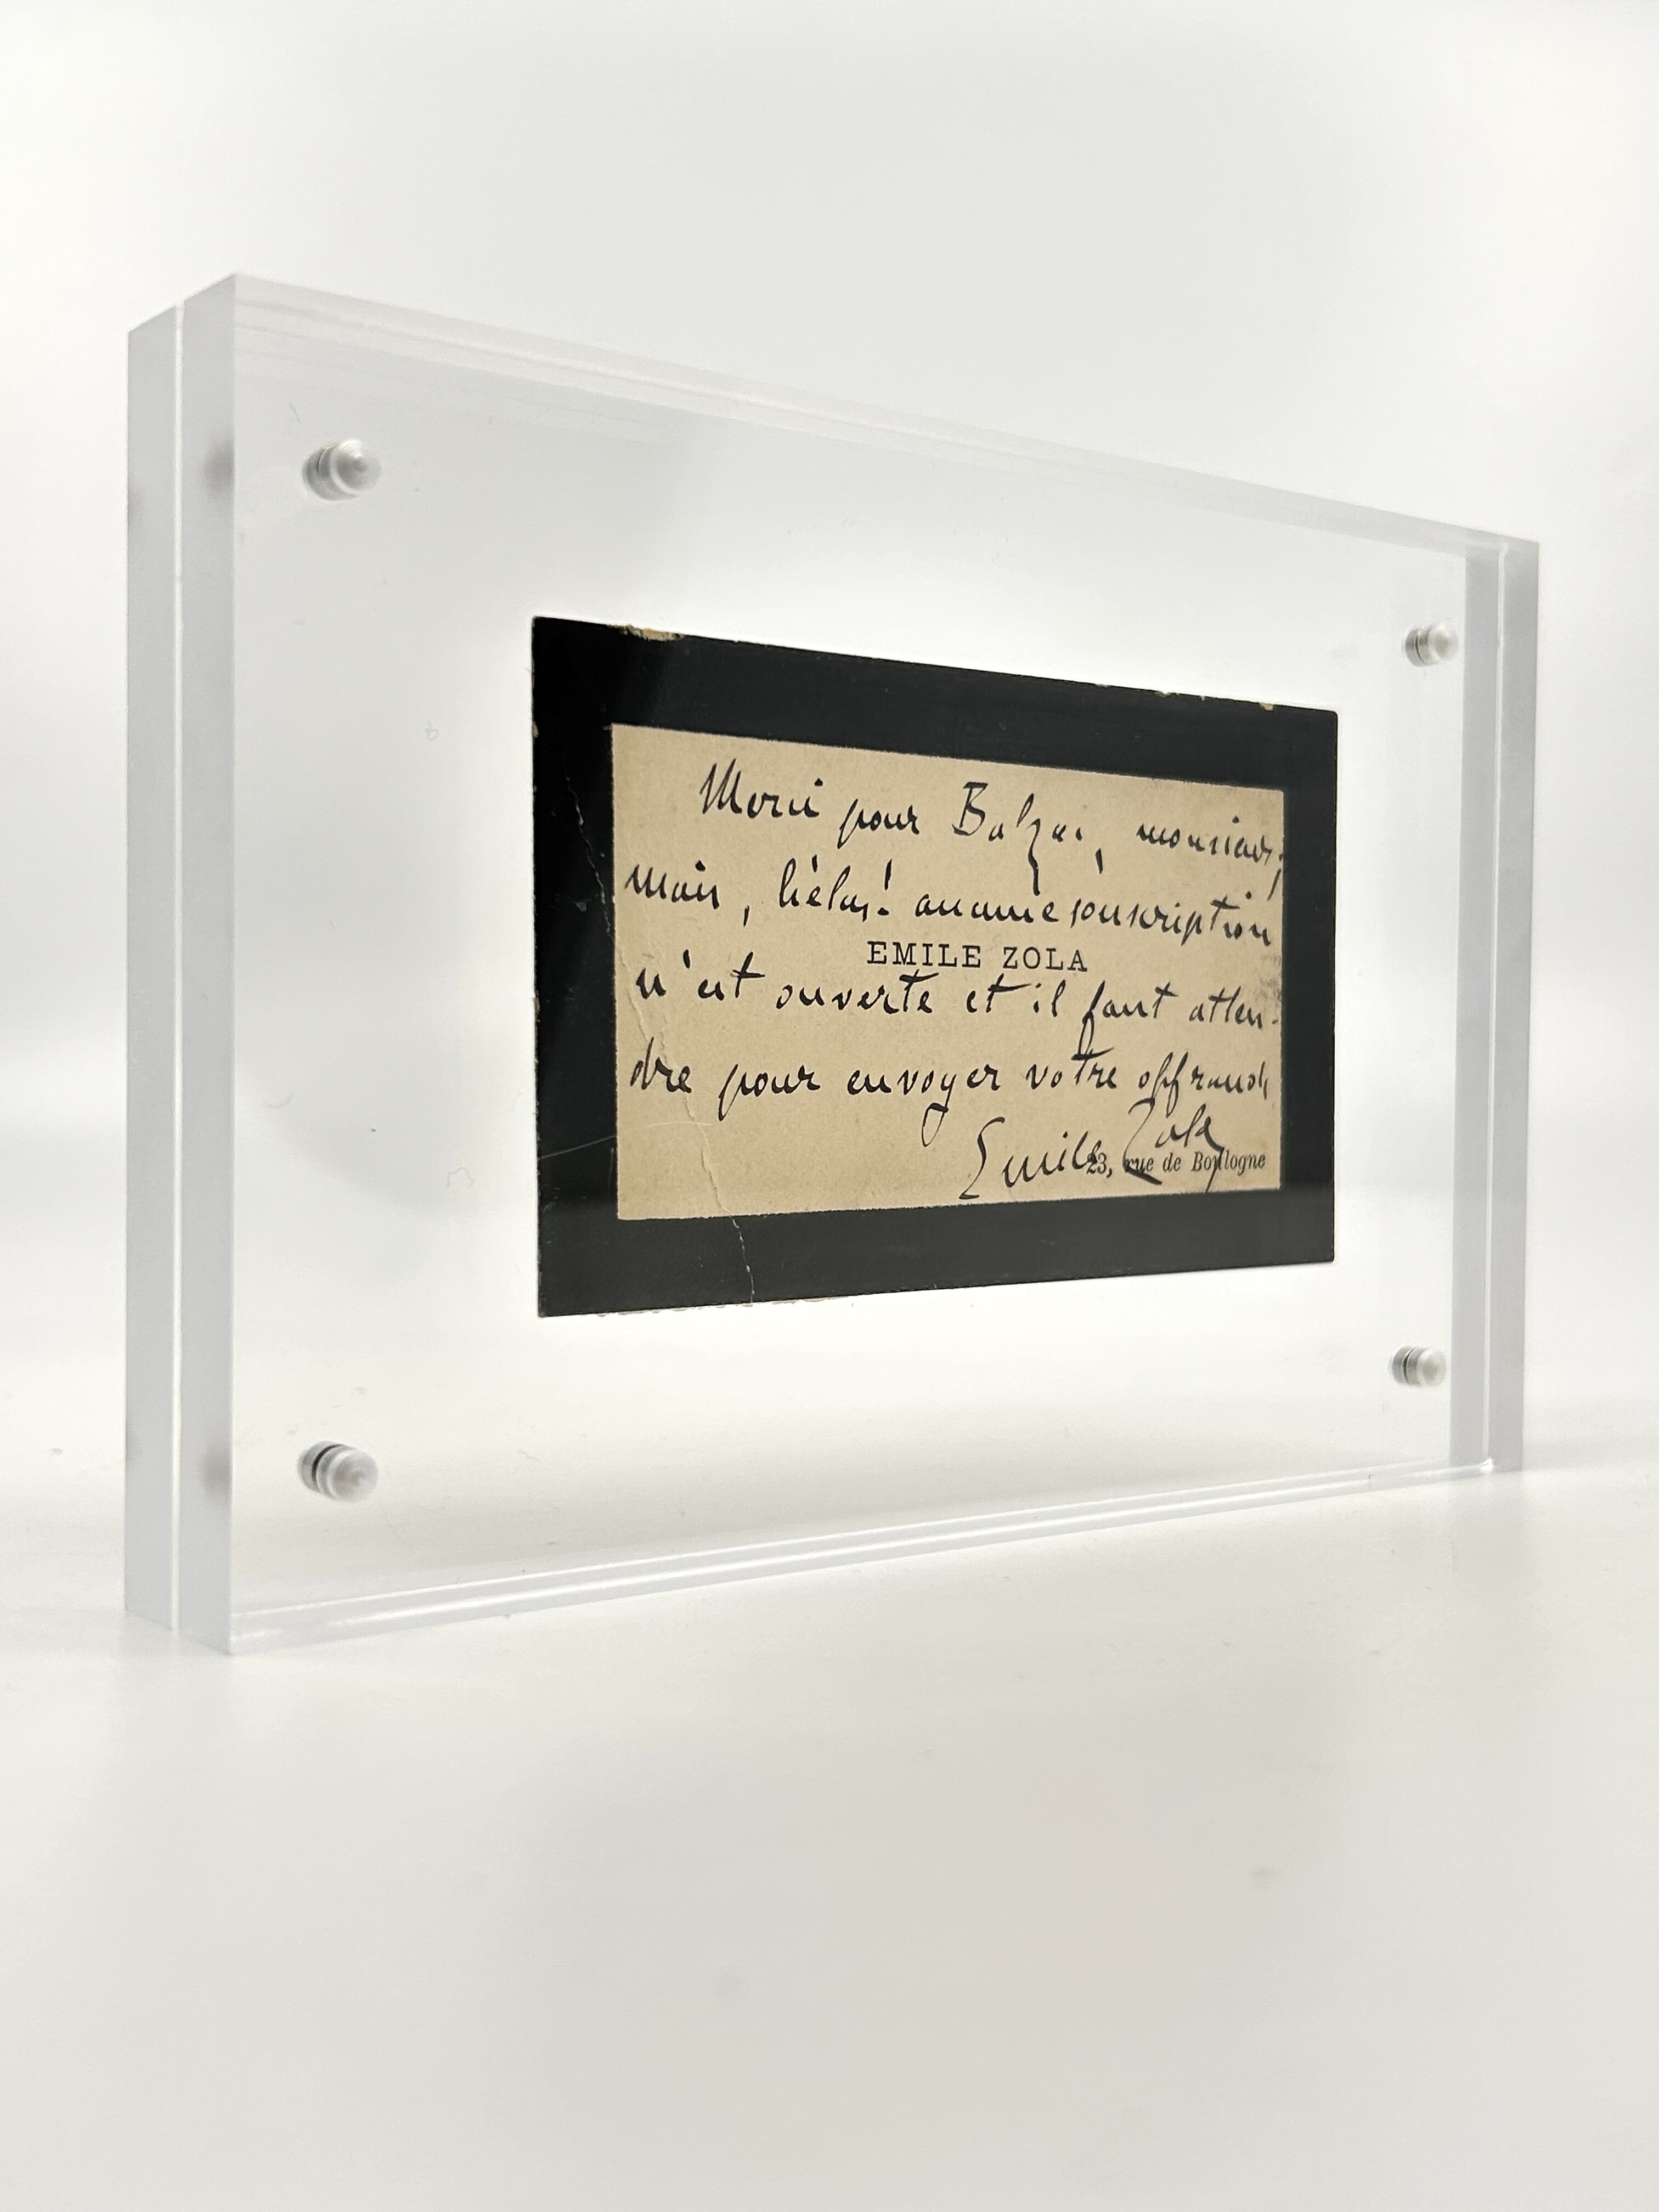 Merci pour Balzac, monsieur;
mais, hélas! aucune souscription
EMILE ZOLA
n'est ouverte et il faut atten-
dre pour envoyer votre offrande
Emile Zola
23, rue de Boulogne